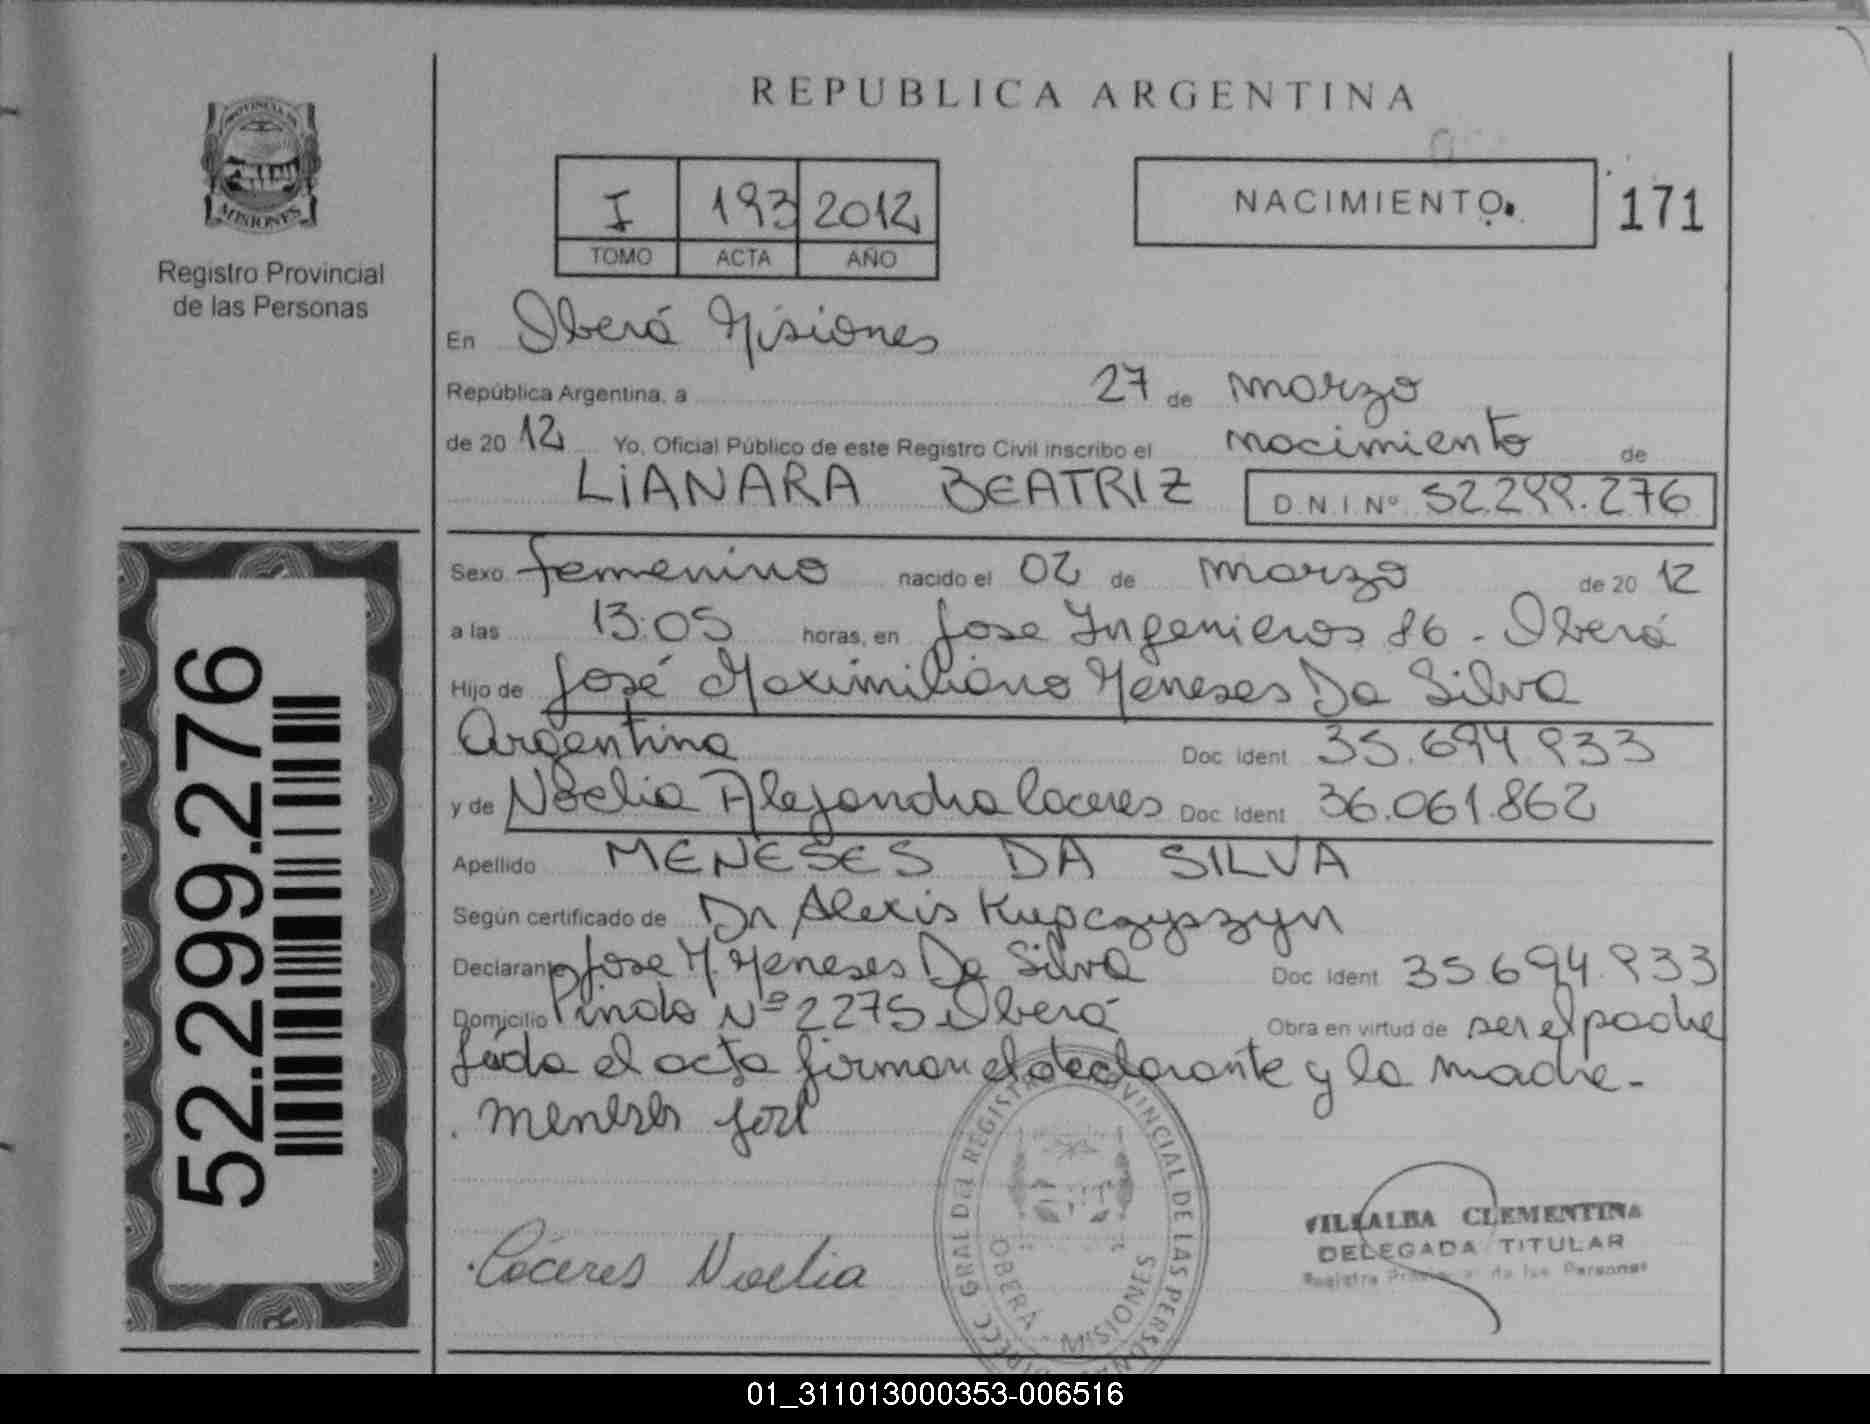 REPUBLICA ARGENTINA
PROVINCIA DE
MISIONES
Registro Provincial
de las Personas
I 193 2012
TOMO ACTA AÑO
NACIMIENTO
171
En Oberá Misiones
República Argentina, a 27 de marzo
de 2012 Yo, Oficial Público de este Registro Civil inscribo el nacimiento de
LIANARA BEATRIZ D.N.I.Nº 52.299.276
Sexo femenino nacido el 02 de marzo de 2012
a las 13:05 horas, en Jose Ingenieros 86 - Oberá
Hijo de José Maximiliano Meneses Da Silva
Argentina Doc Ident 35.694.933
y de Noelia Alejandra Caceres Doc Ident 36.061.862
Apellido MENESES DA SILVA
Según certificado de Dr Alexis Kupczyszyn
Declarante Jose M. Meneses Da Silva Doc Ident 35.694.933
Domicilio Pindo Nº 2275 Oberá Obra en virtud de ser el padre
Leída el acta firman el declarante y la madre-
Meneses José
Cáceres Noelia
DIRECC GRAL DEL REGISTRO PROVINCIAL DE LAS PERSONAS
OBERÁ - MISIONES
VILLALBA CLEMENTINA
DELEGADA TITULAR
Registro Provincial de las Personas
52.299.276
01_311013000353-006516